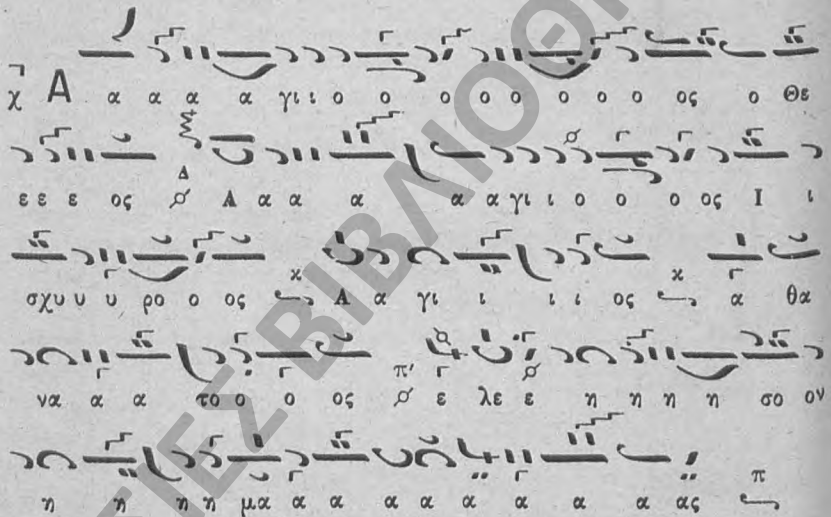 χ Α α α α α γι ι ο ο ο ο ο ο ο ο ος ο Θε
ε ε ε ος Δ Α α α α α α γι ι ο ο ο ος Ι ι
σχυ υ υ ρο ο ος χ Α α γι ι ι ι ος χ α θα
να α α α το ο ο ος π′ ε λε ε η η η η σο ον
η η η η μα α α α α α α α α α ας π
ΤΙΕΣ ΒΙΒΛΙΟΘΗ